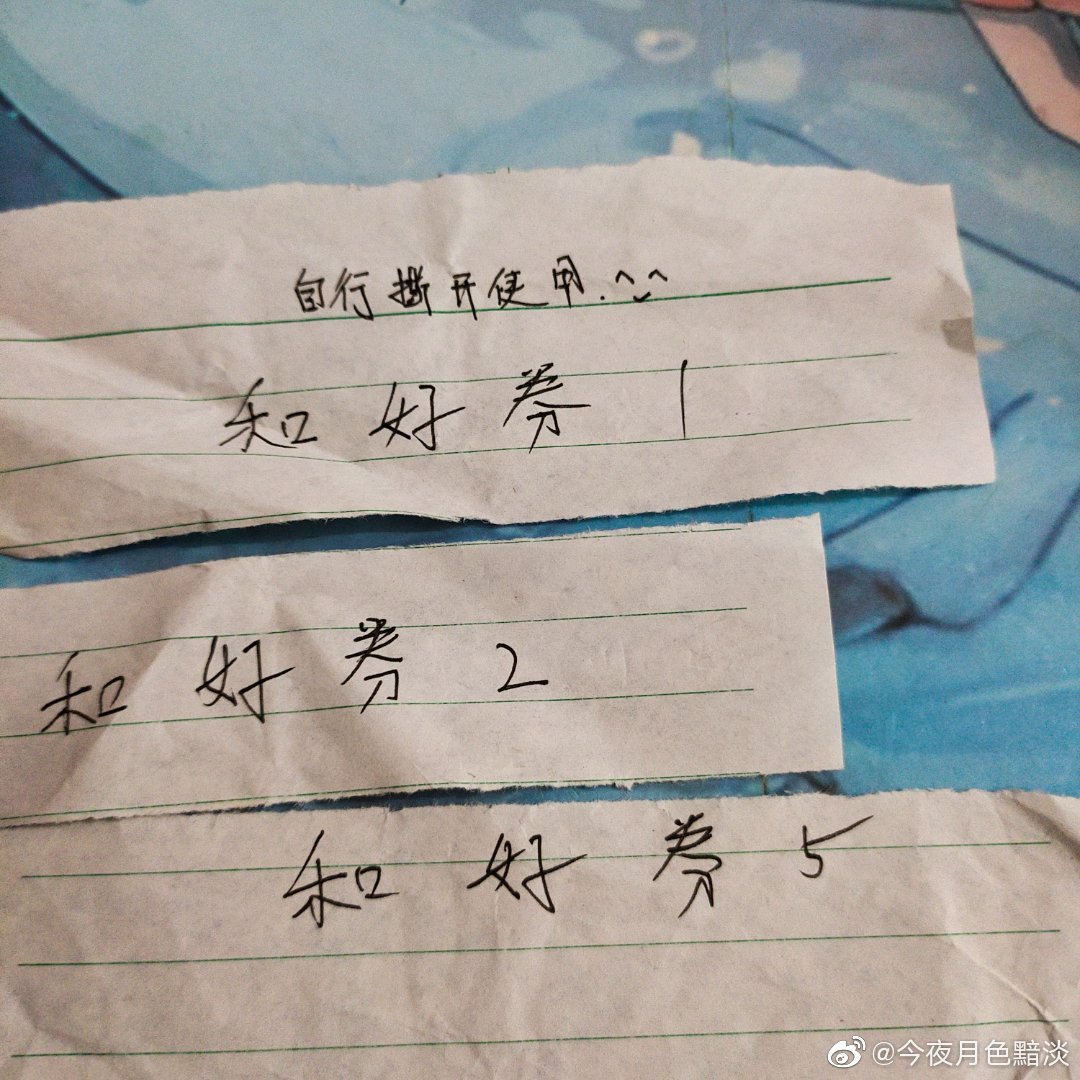 自行撕开使用.^⌣^
和好券1
和好券2
和好券5
@今夜月色黯淡